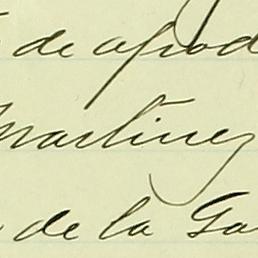 de apod
Martinez
de la Ga